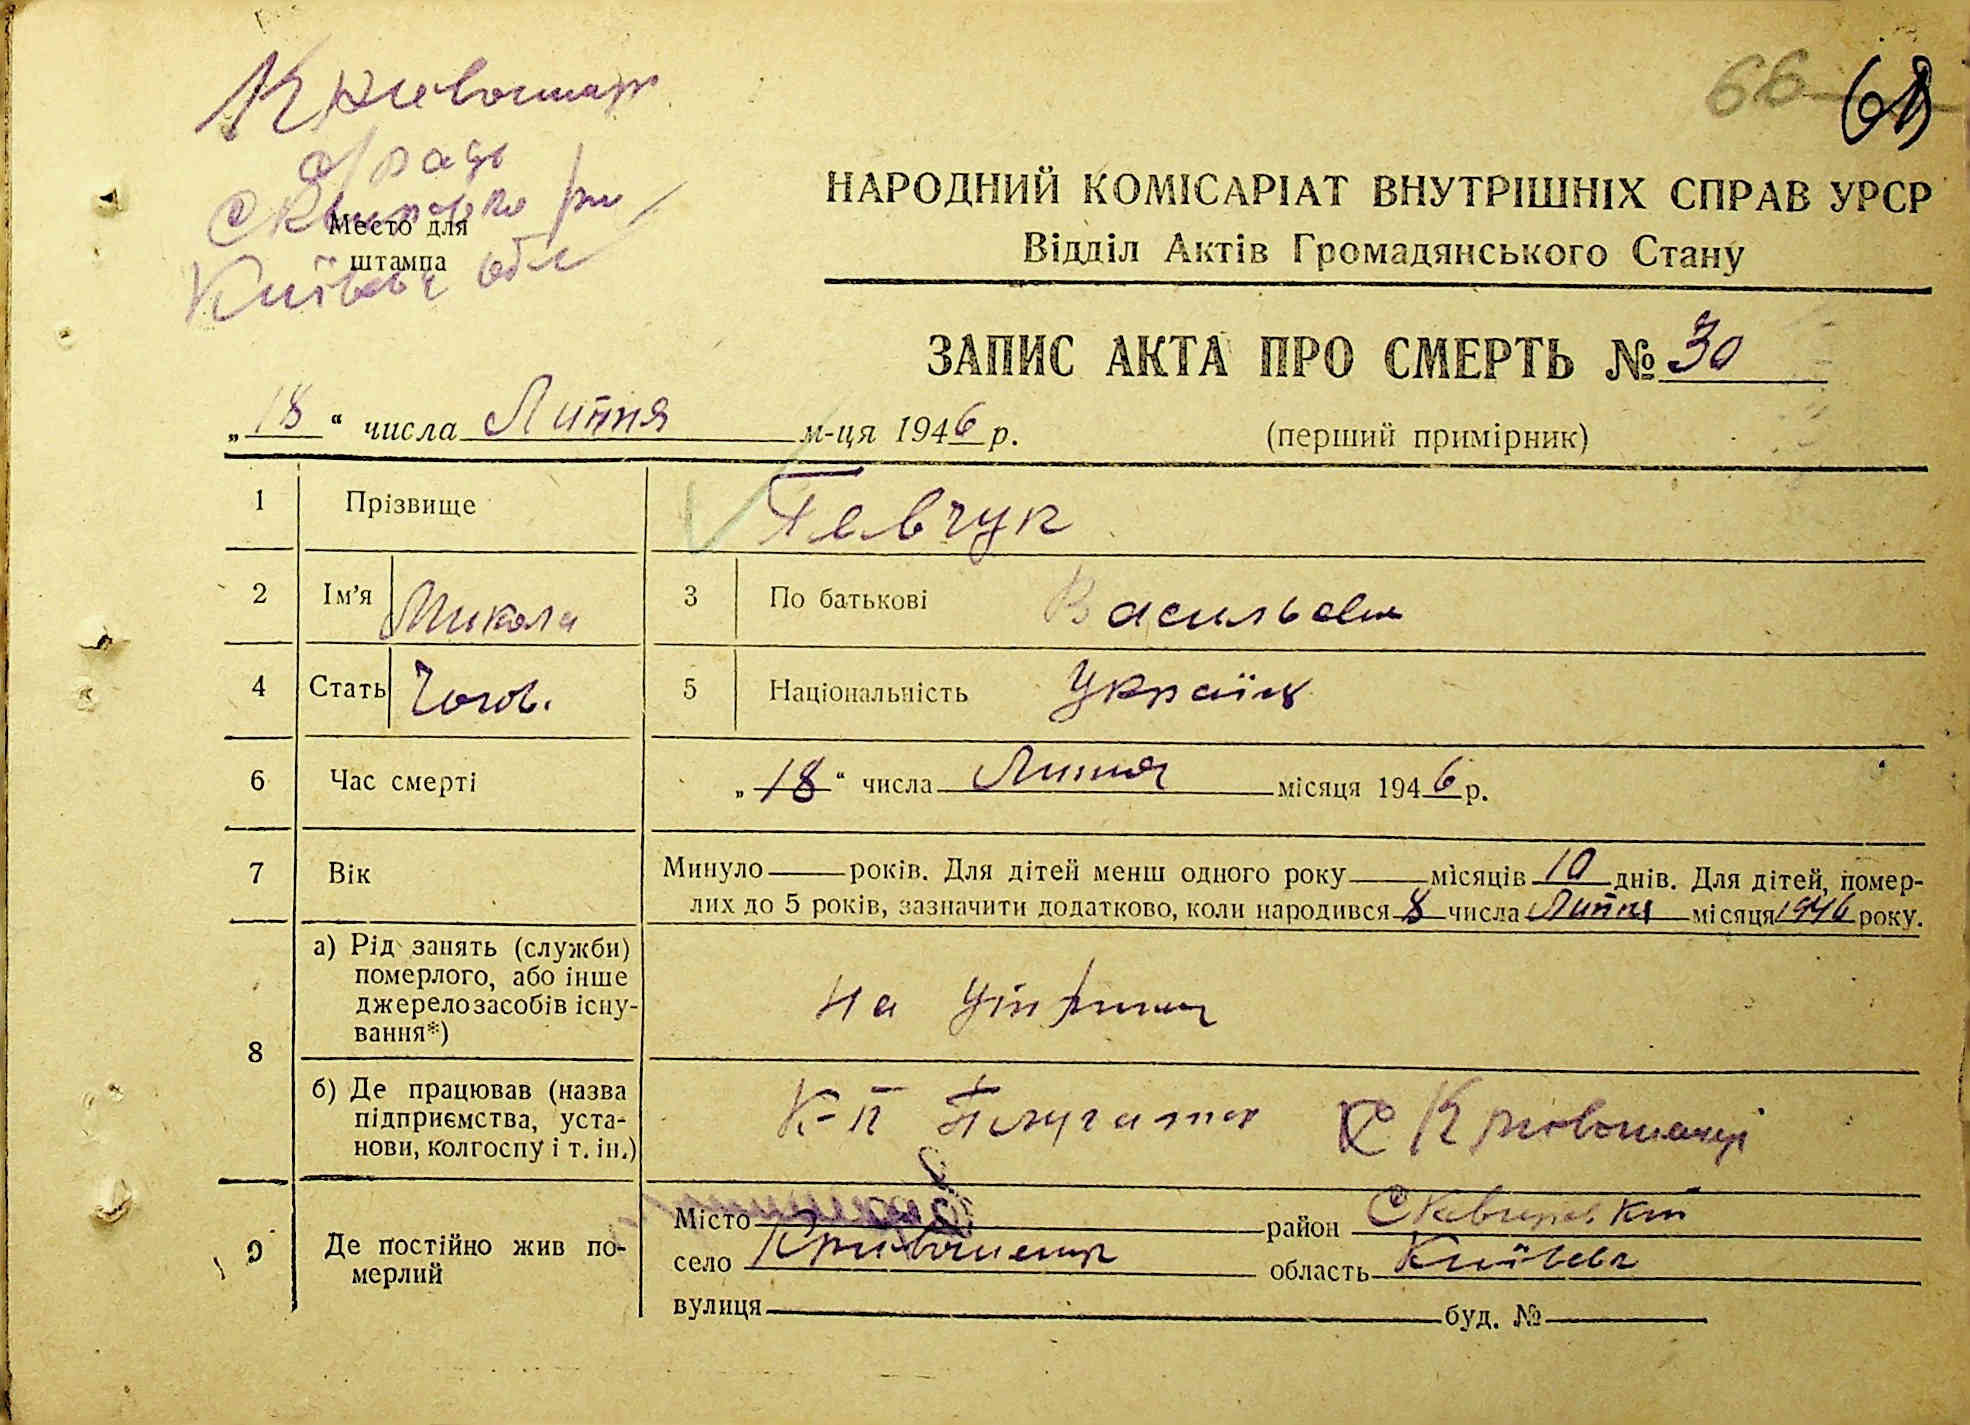 66 68
Кривошаї
с/рада
Сквирсько р-ну
Место для
штампа
Київська обл
НАРОДНИЙ КОМІСАРІАТ ВНУТРІШНІХ СПРАВ УРСР
Відділ Актів Громадянського Стану
ЗАПИС АКТА ПРО СМЕРТЬ № 30
„18“ числа Липня м-ця 1946 р. (перший примірник)
1 Прізвище Певчук
2 Ім'я Микола 3 По батькові Васильович
4 Стать Чолов. 5 Національність Україн
6 Час смерті „18“ числа Липня місяця 1946 р.
7 Вік Минуло років. Для дітей менш одного року місяців 10 днів. Для дітей, помер-
лих до 5 років, зазначити додатково, коли народився 8 числа Липня місяця 1946 року.
8 а) Рід занять (служби)
померлого, або інше
джерело засобів існу-
вання*)
На утриман
б) Де працював (назва
підприємства, уста-
нови, колгоспу і т. ін.)
К-п Плугатар с Кривошаїнці
9 Де постійно жив по-
мерлий
Місто район Сквирський
село Кривошеинц область Київськ
вулиця буд. №